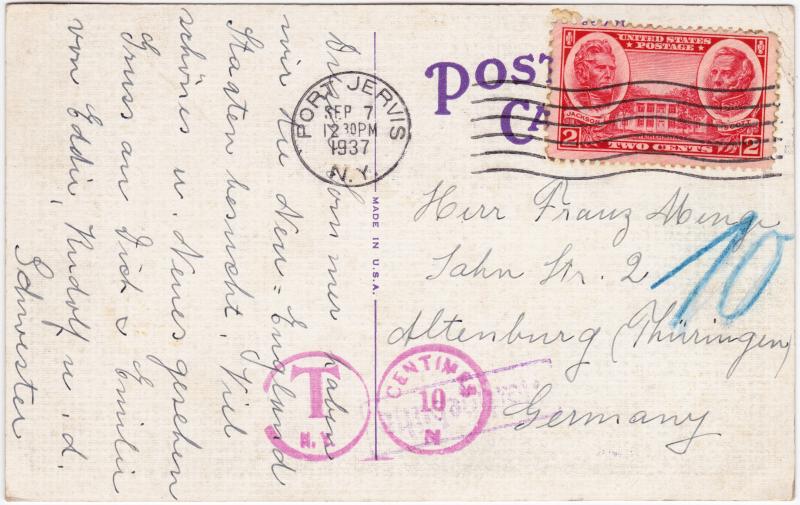 POST
CA
UNITED STATES
POSTAGE
JACKSON
SCOTT
2 TWO CENTS 2
PORT JERVIS
SEP 7
12 30 PM
1937
N.Y.
MADE IN U.S.A.
T
N.Y.
CENTIMES
10
N
10
Herr Franz Menge
Jahn Str. 2
Altenburg (Thüringen)
Germany
Sommer haben
wir die Neu=England
Staaten besucht. Viel
schönes u. Neues gesehen
Gruss an Dich & Emilie
von Eddie, Rudolf u. d.
Schwester